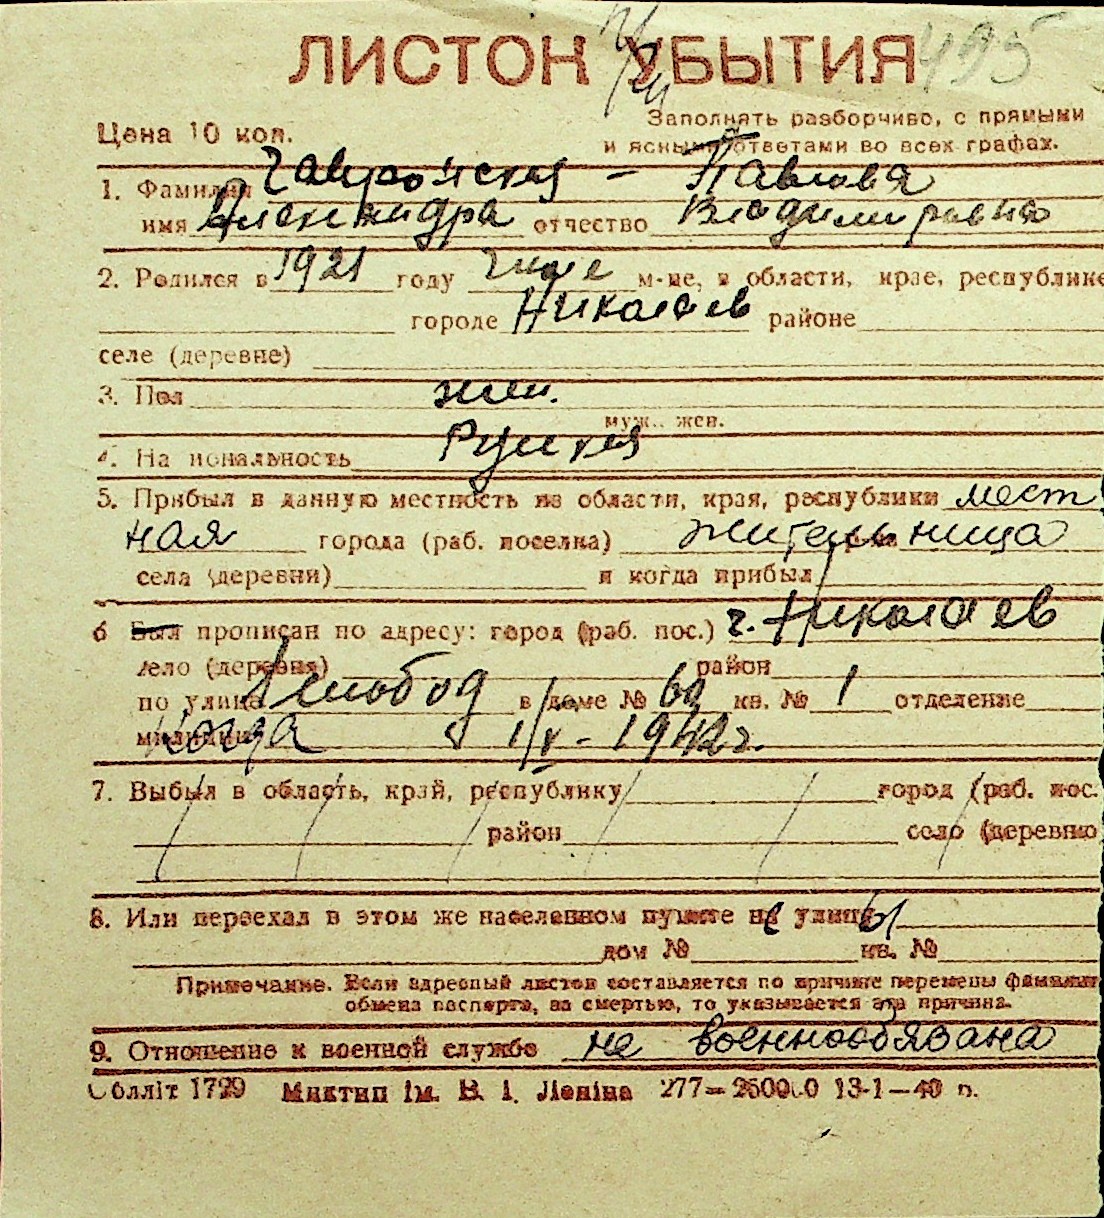 ЛИСТОН УБЫТИЯ 495
Цена 10 коп.
Заполнять разборчиво, с прямыми
и ясными ответами во всех графах.
1. Фамилия - Павлова
имя Александра отчество Владимировна
2. Родился в 1921 году м-це, в области, крае, республике
городе Николаев районе
селе (деревне)
3. Пол жен.
муж., жен.
4. Национальность Русская
5. Прибыл в данную местность из области, края, республики мест
ная города (раб. поселка) жительница
села (деревни) и когда прибыл
6 Был прописан по адресу: город (раб. пос.) г. Николаев
село (деревня) район
по улице Слобод в доме № 69 кв. № 1 отделение
милиции Когда 1/V - 1942 г.
7. Выбыл в область, край, республику город (раб. пос.
район село (деревню
8. Или переехал в этом же населенном пункте на улицу
дом № кв. №
Примечание. Если адресный листок составляется по причине перемены фамилии
обмена паспорта, за смертью, то указывается эта причина.
9. Отношение к военной службе не военнообязана
Облліт 1729 Миктип ім. В. І. Леніна 277—250000 13-1—40 р.